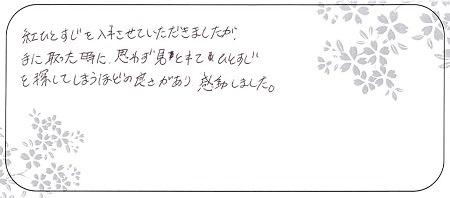 紅ひとすじを入手させていただきましたが、
手に取った時に、思わず見とれてひとすじ
を探してしまうほどの良さがあり感動しました。